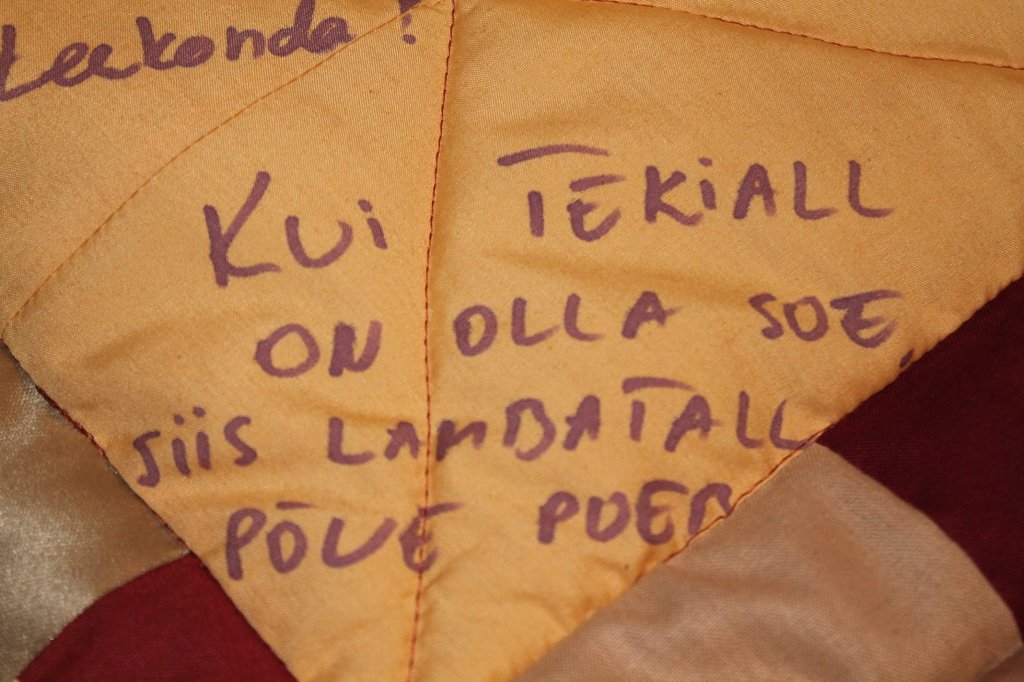 teekonda!
KUi TEKiALL
ON OLLA SOE,
SiiS LAMBATALL
PÕUE POEB